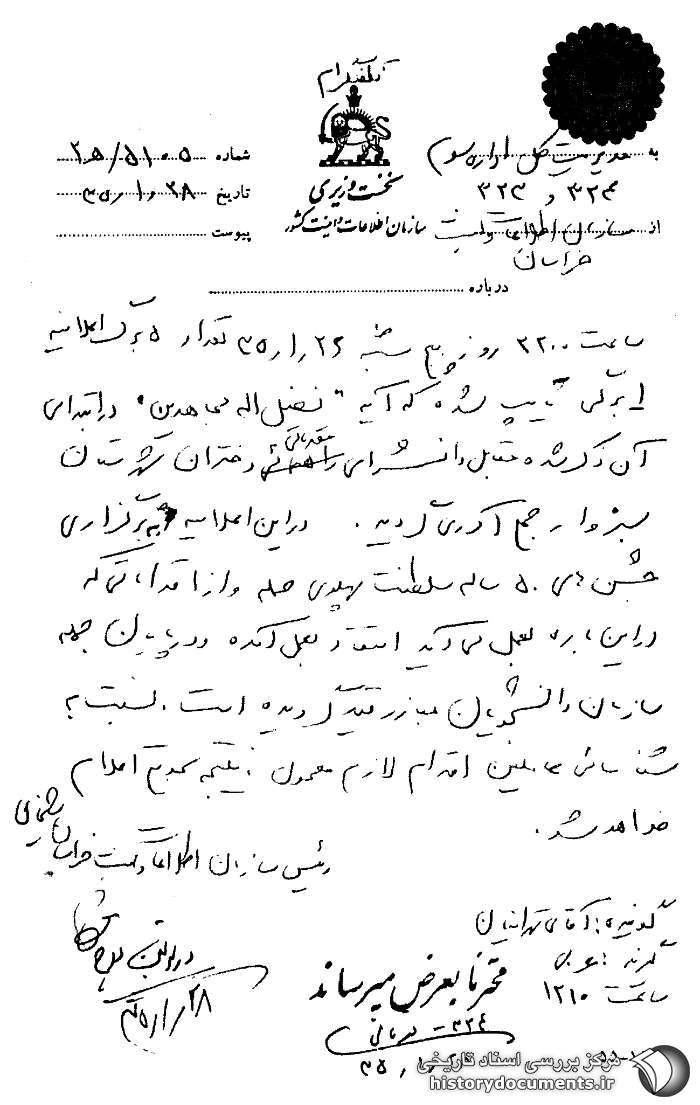 تلفنگرام
به مدیریت کل اداره سوم
۳۲۴ و ۳۲۳
از سازمان اطلاعات و امنیت
خراسان
نخست وزیری
سازمان اطلاعات و امنیت کشور
شماره ۲۵/۵۱۰۰۵
تاریخ ۳۵/۱/۲۸
پیوست
درباره
ساعت ۲۲۰۰ روز پنج شنبه ۳۵/۱/۲۶ تعداد ۵ برگ اعلامیه
۱ برگی تایپ شده که آیه "فضل اله مجاهدین" در ابتدای
آن ذکر شده مقابل دانشسرای راهنمائی مقدماتی دختران شهرستان
سبزوار جمع آوری گردید. در این اعلامیه به برگزاری
جشن های ۵۰ ساله سلطنت پهلوی حمله و از اقداماتی که
در این باره بعمل می آید انتقاد بعمل آمده و در پایان جمله
سازمان دانشجویان مبارز قید گردیده است. نسبت به
شناسائی عاملین اقدام لازم معمول نتیجه بموقع اعلام
خواهد شد.
رئیس سازمان اطلاعات و امنیت خراسان
گوینده: آقای تهرانیان
گیرنده:
ساعت ۱۲۱۰
محترما بعرض میرساند
۳۲۴
۲۸
مرکز بررسی اسناد تاریخی
historydocuments.ir